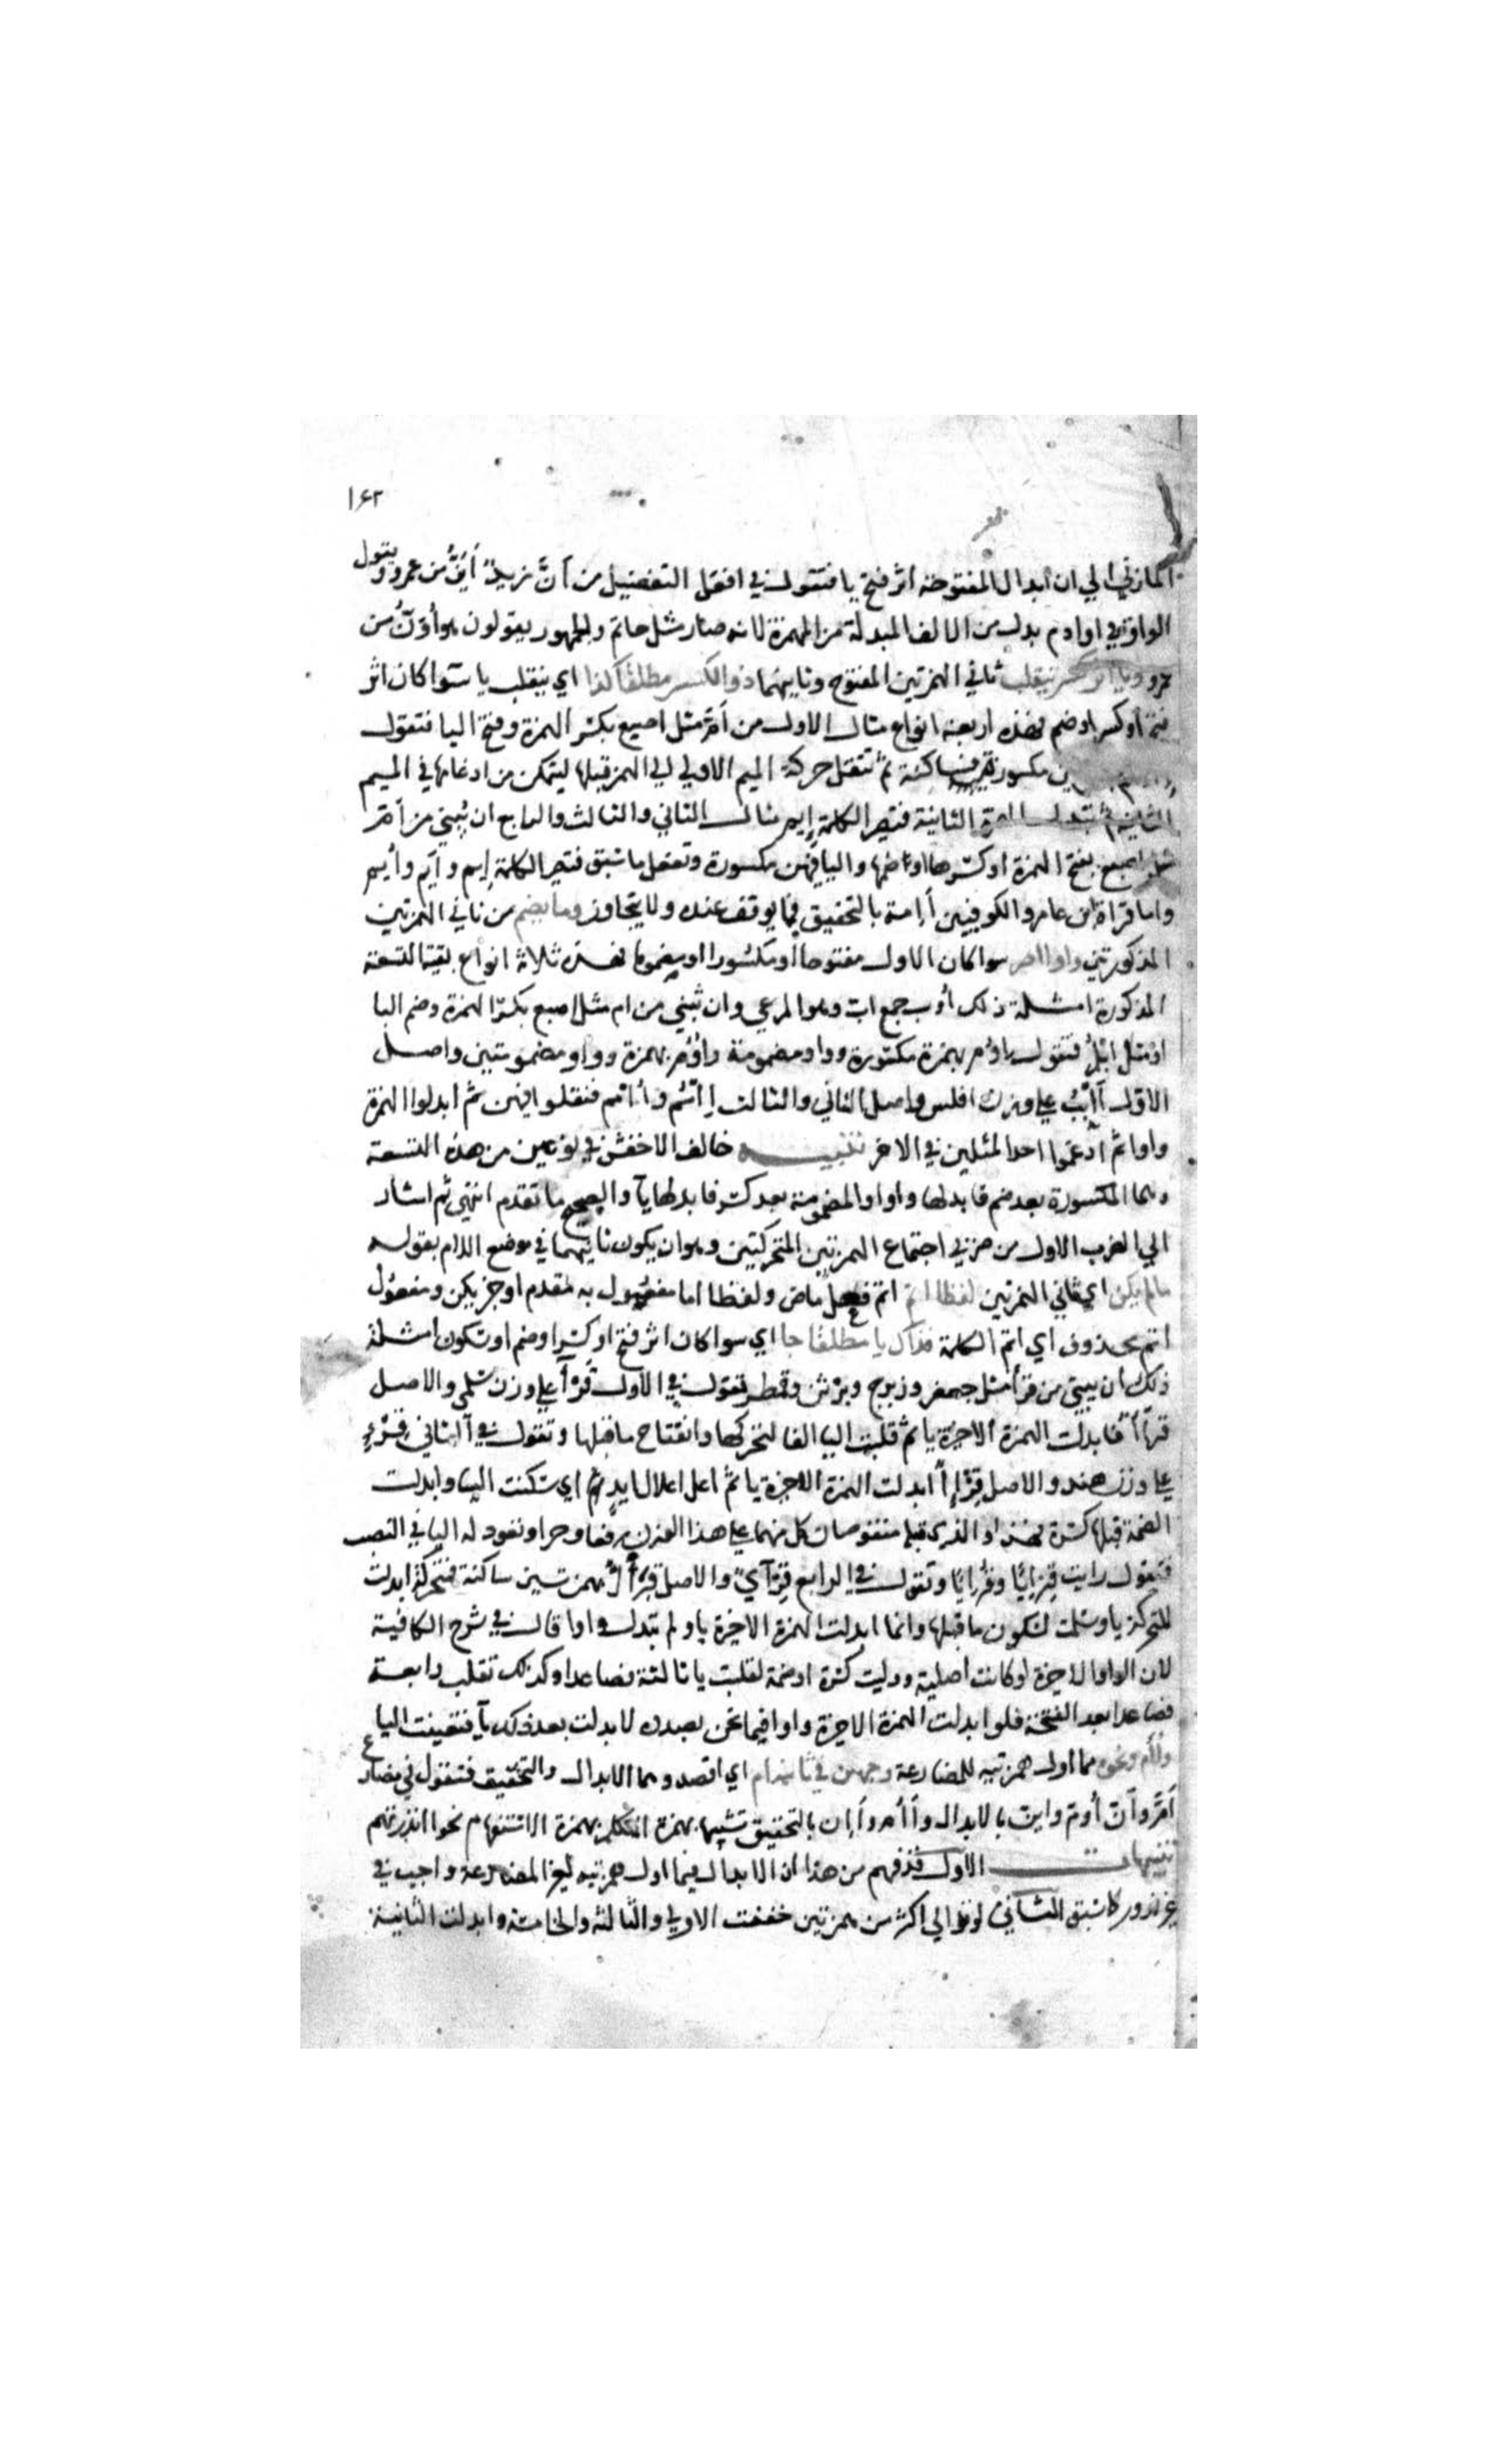 ١٤٢
المازني الي ان ابدال المفتوحة اثر فتح يا فتقول في افعل التفضيل من انّ زيد أيَنُّ من عمرو ويقول
الواو في اوادم بدل من الالف المبدلة من الهمزة لانه صار مثل حاتم والجمهور يقولون هو أوَنُّ من
عمرو ويا اثر كسر ينقلب ثاني الهمزتين المفتوح وثانيهما ذو الكسر مطلقا كذا اي ينقلب يا سوا كان اثر
فتح او كسر او ضم فهذه اربعة انواع مثال الاول من أمّ مثل اصبع بكسر الهمزة وفتح البا فتقول
مكسورة فساكنة ثم تنقل حركة الميم الاولي الي الهمز قبلها ليتمكن من ادغامها في الميم
الثانية ثم تبدل الهمزة الثانية فتصير الكلمة إيم مثال الثاني والثالث والرابع ان يُبني من أمّ
مثل اصبع بفتح الهمزة او كسرها او ضمها والبا فيهن مكسورة وتفعل ما سبق فتصير الكلمة إيم وأيم وأُيم
واما قراة ابن عامر والكوفيين أإمة بالتحقيق فما يوقف عنده ولا يتجاوز وما يضم من ثاني الهمزتين
المذكورتين واوا اصر سوا كان الاول مفتوحا او مكسورا او مضموما فهذه ثلاثة انواع بقية التسعة
المذكورة امثلة ذلك أوب جمع اب وهو المرعي وان تبني من ام مثل اصبع بكسر الهمزة وضم البا
او مثل ابلم فتقول إوم بهمزة مكسورة وواو مضمومة وأوم بهمزة وواو مضمومتين واصل
الاول أأبب علي وزن افلس واصل الثاني والثالث إأمم وأأمم فنقلوا فيهن ثم ابدلوا الهمزة
واوا ثم ادغموا احد المثلين في الاخر تنبيه خالف الاخفش في نوعين من هذه التسعة
وهما المكسورة بعد ضم فابدلها واوا والمضمومة بعد كسر فابدلها يآ والصحيح ما تقدم انتهي ثم اشار
الي الضرب الاول من ضربي اجتماع الهمزتين المتحركتين وهو ان يكون ثانيهما في موضع اللام بقوله
ما لم يكن اي ثاني الهمزتين لفظا اتم اتم فعل ماض ولفظا اما مفعول به مقدم او خبر يكن ومفعول
اتم محذوف اي اتم الكلمة فذاك يا مطلقا جا اي سوا كان اثر فتح او كسر او ضم او تكون امثلة
ذلك ان يبني من قرأ مثل جعفر وزبرج وبرثن وقمطر تقول في الاول قرأا علي وزن سلمي والاصل
قرأأ فابدلت الهمزة الاخيرة يا ثم قلبت اليا الفا لتحركها وانفتاح ما قبلها وتقول في الثاني قرء
علي وزن هند والاصل قرإإ ابدلت الهمزة الاخيرة يا ثم اعل اعلال ايد اي سكنت اليا وابدلت
الضمة قبلها كسرة فهذا والذي قبله منقوصان كل منهما علي هذا الوزن رفعا وجرا وتعود له اليا في النصب
فتقول رايت قرئيا وقرئيا وتقول في الرابع قرأي والاصل قرأأ بهمزتين ساكنة فمتحركة ابدلت
المتحركة يا وسلمت لسكون ما قبلها وانما ابدلت الهمزة الاخيرة يا ولم تبدل واوا قال في شرح الكافية
لان الواو الاخيرة لو كانت اصلية ووليت كسرة او ضمة لقلبت يا ثالثة فصاعدا وكذلك تقلب رابعة
فصاعدا بعد الفتحة فلو ابدلت الهمزة الاخيرة واوا فيما نحن بصدده لابدلت بعد ذلك يآ فتعينت اليا
وأأم ونحوه مما اول همزتيه للمضارعة وجهين في ثانيه ام اي اقصد وهما الابدال والتحقيق فتقول في مضارع
امّ وانّ أوم واين بالابدال وأأم وأإن بالتحقيق تشبيها بهمزة المتكلم بهمزة الاستفهام نحو أأنذرتهم
تنبيهات الاول قد فهم من هذا ان الابدال فيما اول همزتيه لغير المضارعة واجب في
غير ندور كما سبق الثاني لو توالي اكثر من همزتين خففت الاولي والثالثة والخامسة وابدلت الثانية